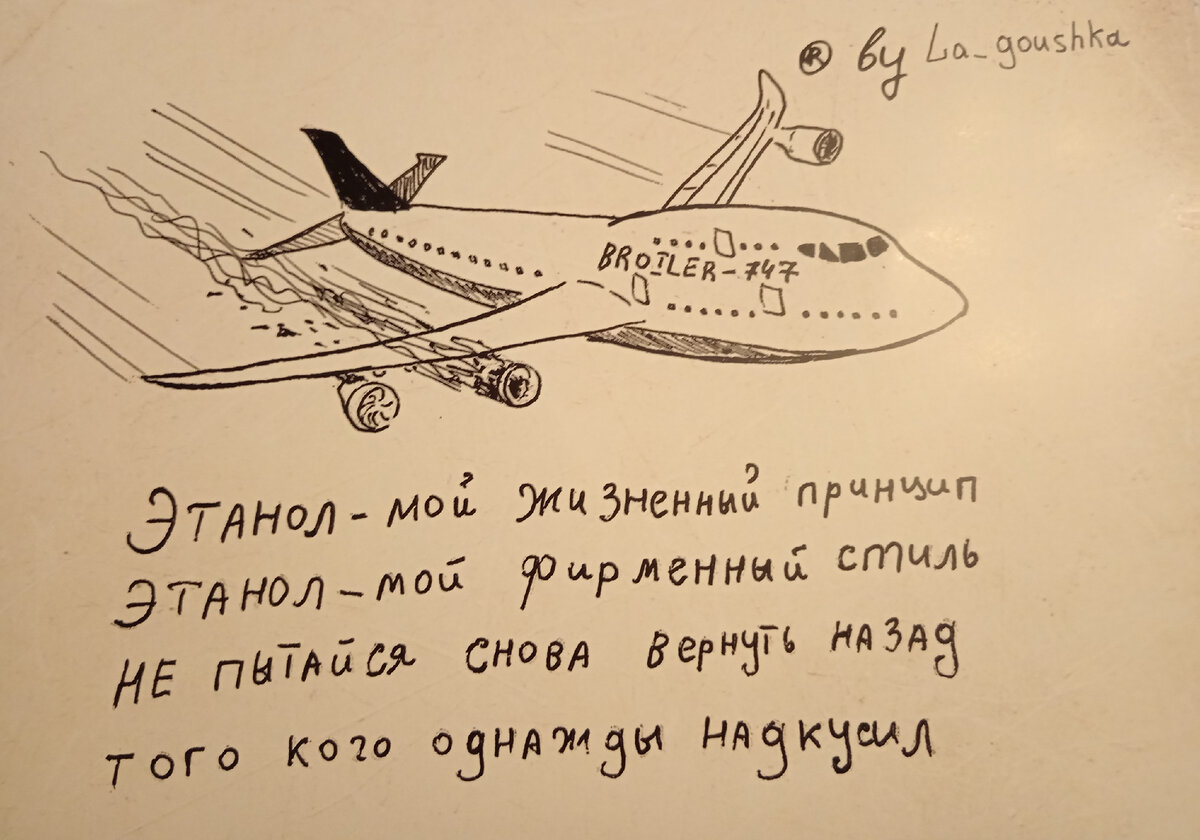 ® by La_goushka
BROILER-747
ЭТАНОЛ-МОЙ ЖИЗНЕННЫЙ ПРИНЦИП
ЭТАНОЛ-МОЙ ФИРМЕННЫЙ СТИЛЬ
НЕ ПЫТАЙСЯ СНОВА ВЕРНУТЬ НАЗАД
ТОГО КОГО ОДНАЖДЫ НАДКУСИЛ